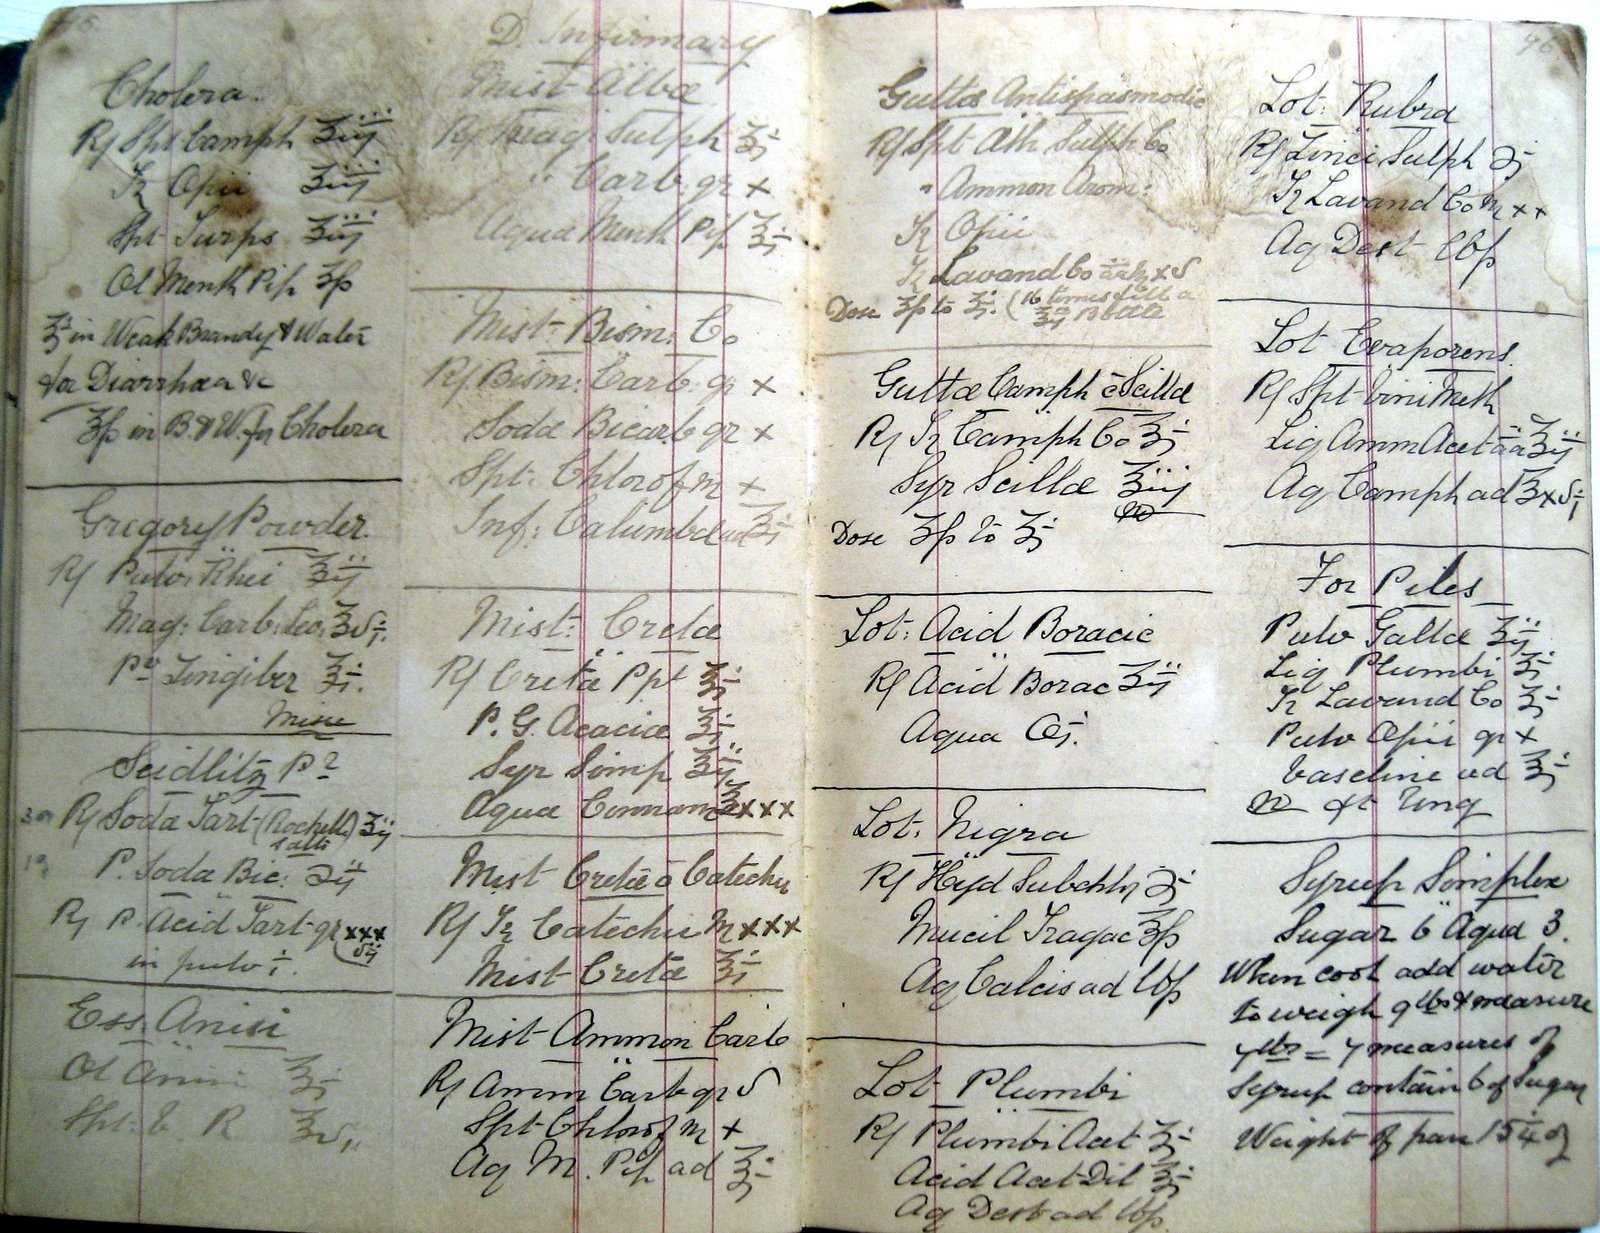 Cholera.
R Spt Camph ʒiij
Tr Opii ʒiij
Spt Turps ʒiij
Ol Menth Pip ʒß
ʒi in Weak Brandy & Water
for Diarrhœa &c
ʒß in B. & W. for Cholera
Gregory Powder.
R Pulv. Rhei ʒij
Mag: Carb: Lev: ʒvj.
Pv Zingiber ʒj.
Misce
Seidlitz P
R Soda Tart (Rochelle Salts) ʒij
P. Soda Bic: ℈ij
R P. Acid Tart gr xxxvij
in pulv i.
Ess. Anisi
Ol Anisi ʒj
Spt. V. R
D. Infirmary
Mist Albæ
R Mag Sulph ʒj
" Carb. gr x
Aqua Menth Pip ℥j
Mist Bism: Co
R Bism: Carb: gr x
Soda Bicarb gr x
Spt: Chlorof ♏ x
Inf: Calumbæ ad ℥j
Mist: Cretæ
R Cretæ Ppt ʒj
P. G. Acaciæ ʒj
Syr Simp ʒij
Aqua Cinnam ʒxxx
Mist Cretæ c̄ Catechu
R Tr Catechu ♏xxx
Mist Cretæ ℥j
Mist Ammon Carb
R Amm Carb gr v
Spt Chlorof ♏ x
Aq M. Pip ad ℥j
96
Guttæ Antispasmodic
R Spt Æth Sulph Co
" Ammon Arom:
Tr Opii
Tr Lavand Co āā ♏ xv
Dose ʒß to ʒj. (16 times fill a
Bottle
Guttæ Camph c̄ Scillæ
R Tr Camph Co ʒj
Syr Scillæ ʒiij
Dose ʒß to ʒj
Lot: Acid Boracic
R Acid Borac ʒij
Aqua Oj.
Lot: Nigra
R Hyd Subchlor ℈j
Mucil Tragac ℥ß
Aq Calcis ad lbß
Lot Plumbi
R Plumbi Acet ʒj
Acid Acet Dil ʒj
Aq Dest ad lbß
Lot: Rubra
R Zinci Sulph ℈j
Tr Lavand Co ♏ xx
Aq Dest lbß
Lot Evaporens
R Spt Vini Meth
Liq Amm Acet āā ℥ij
Aq Camph ad ℥xvj
For Piles
Pulv Gallæ ʒij
Liq Plumbi ʒj
Tr Lavand Co ʒj
Pulv Opii gr x
Vaseline ad ℥j
M ft Ung
Syrup Simplex
Sugar 6 Aqua 3.
When cool add water
to weigh 9 lbs & measure
7 lbs = 7 measures of
Syrup contain 6 of Sugar
Weight of pan 15¼ oz